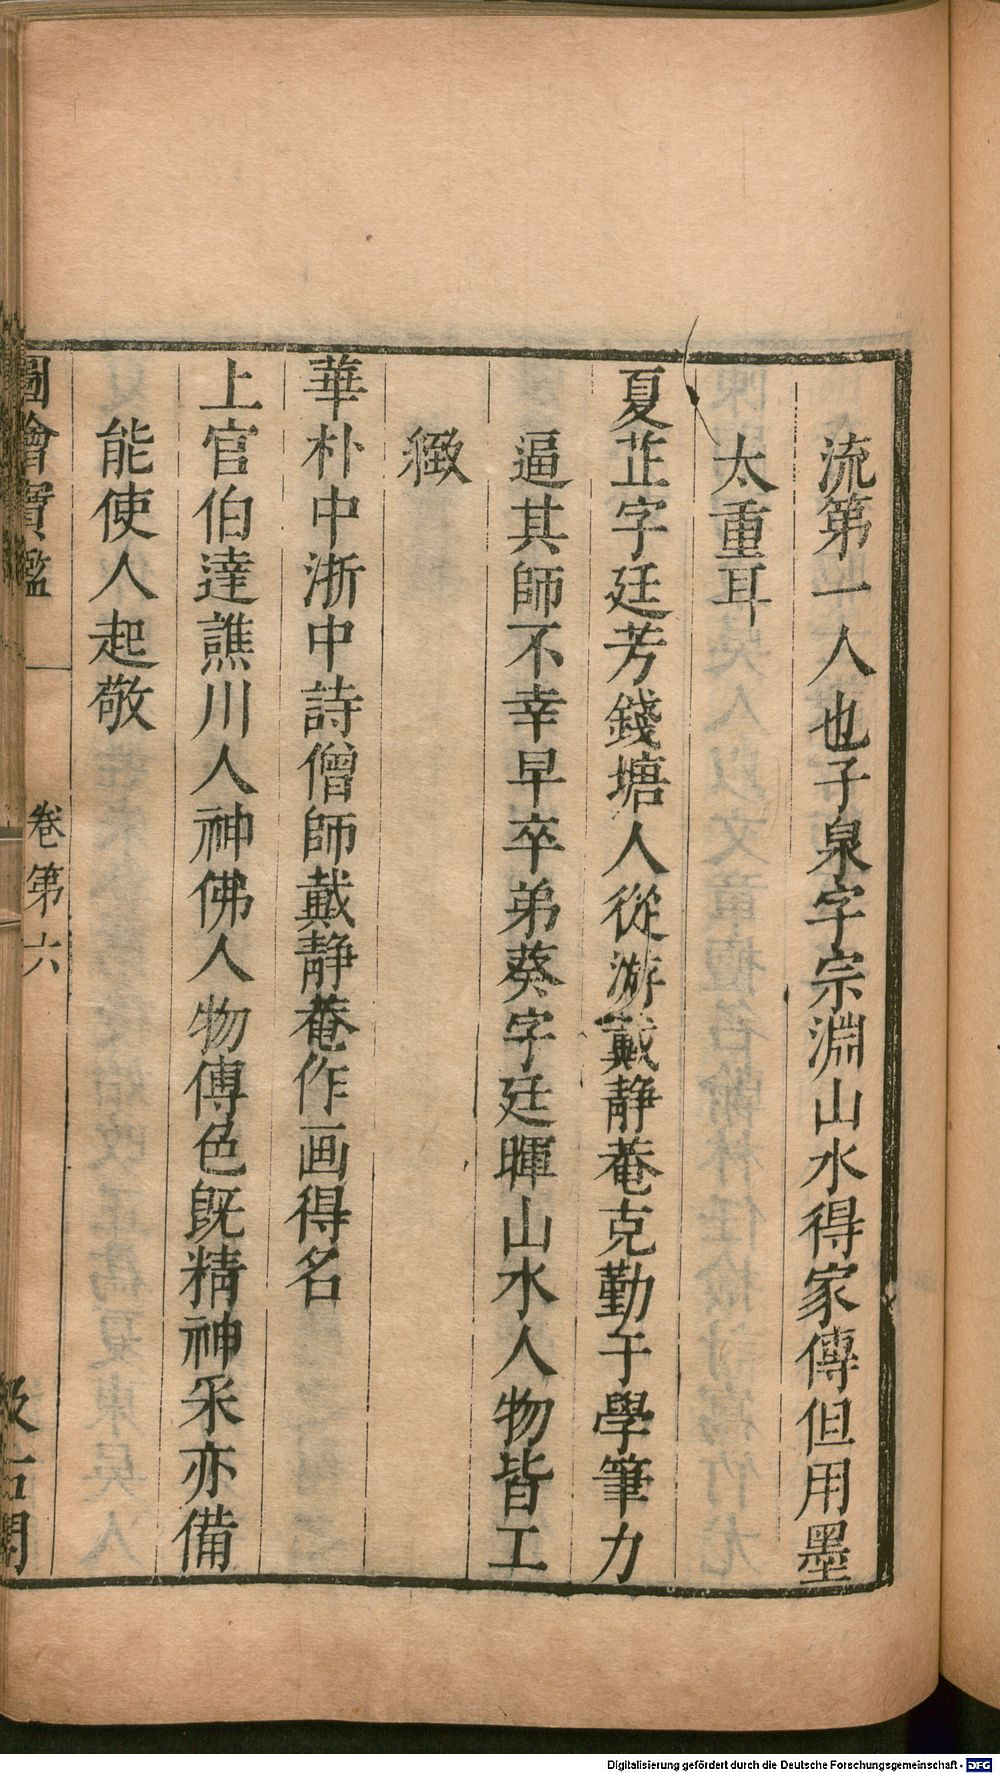 流第一人也子泉字宗淵山水得家傳但用墨
太重耳
夏芷字廷芳錢塘人從游戴靜菴克勤于學筆力
逼其師不幸早卒弟葵字廷暉山水人物皆工
緻
華朴中浙中詩僧師戴靜菴作画得名
上官伯達譙川人神佛人物傅色旣精神采亦備
能使人起敬
圖繪寶鑑 卷第六 汲古閣
Digitalisierung gefördert durch die Deutsche Forschungsgemeinschaft - DFG